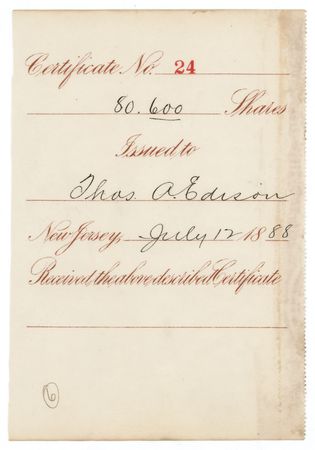 Certificate No. 24
80.600 Shares
Issued to
Thos A. Edison
New Jersey, July 12 1888
Received, the above described Certificate
6